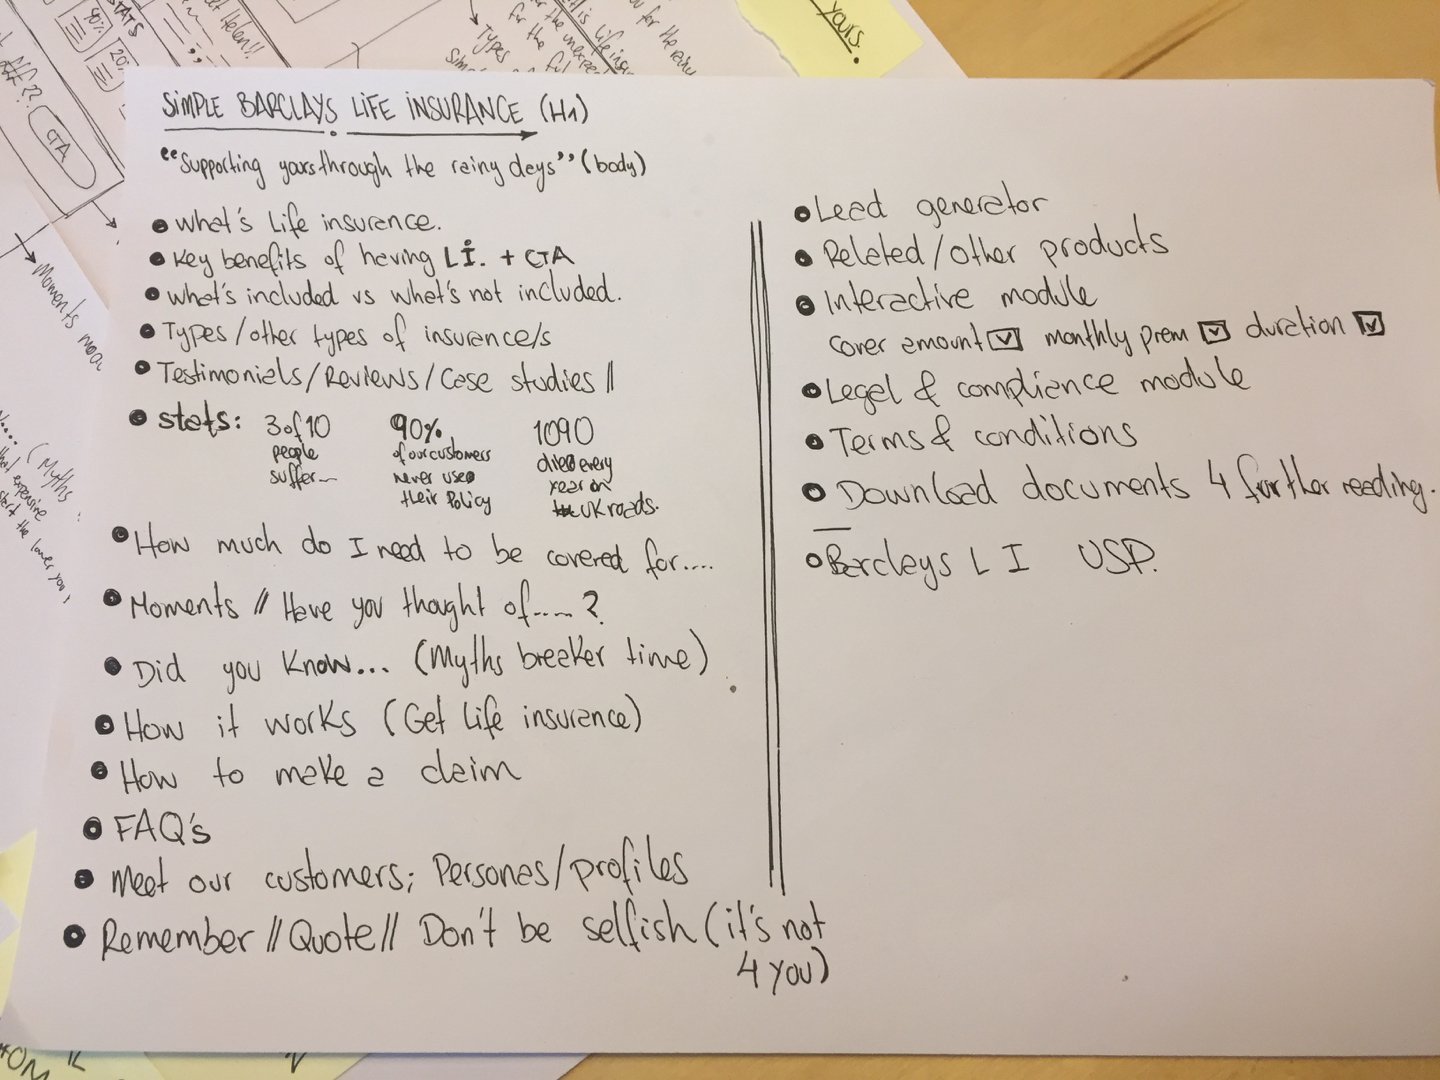 SIMPLE BARCLAYS LIFE INSURANCE (H1)
"Supporting yours through the rainy days" (body)
• What's Life insurance.
• Key benefits of having L.I. + CTA
• What's included vs what's not included.
• Types/other types of insurance/s
• Testimonials/Reviews/Case studies //
• stats: 3 of 10 people suffer...
90% of our customers never used their Policy
1090 died every year on UK roads.
• How much do I need to be covered for....
• Moments // Have you thought of.....?
• Did you know... (Myths breaker time)
• How it works (Get Life insurance)
• How to make a claim
• FAQ's
• Meet our customers; Personas/profiles
• Remember // Quote // Don't be selfish (it's not
4 you)
• Lead generator
• Related/other products
• Interactive module
cover amount ☑ monthly prem ☑ duration ☑
• Legal & compliance module
• Terms & conditions
• Download documents 4 further reading.
• Barclays L I USP.
yours.
STATS
40%
20%
CTA
Types
Moments
(Myths